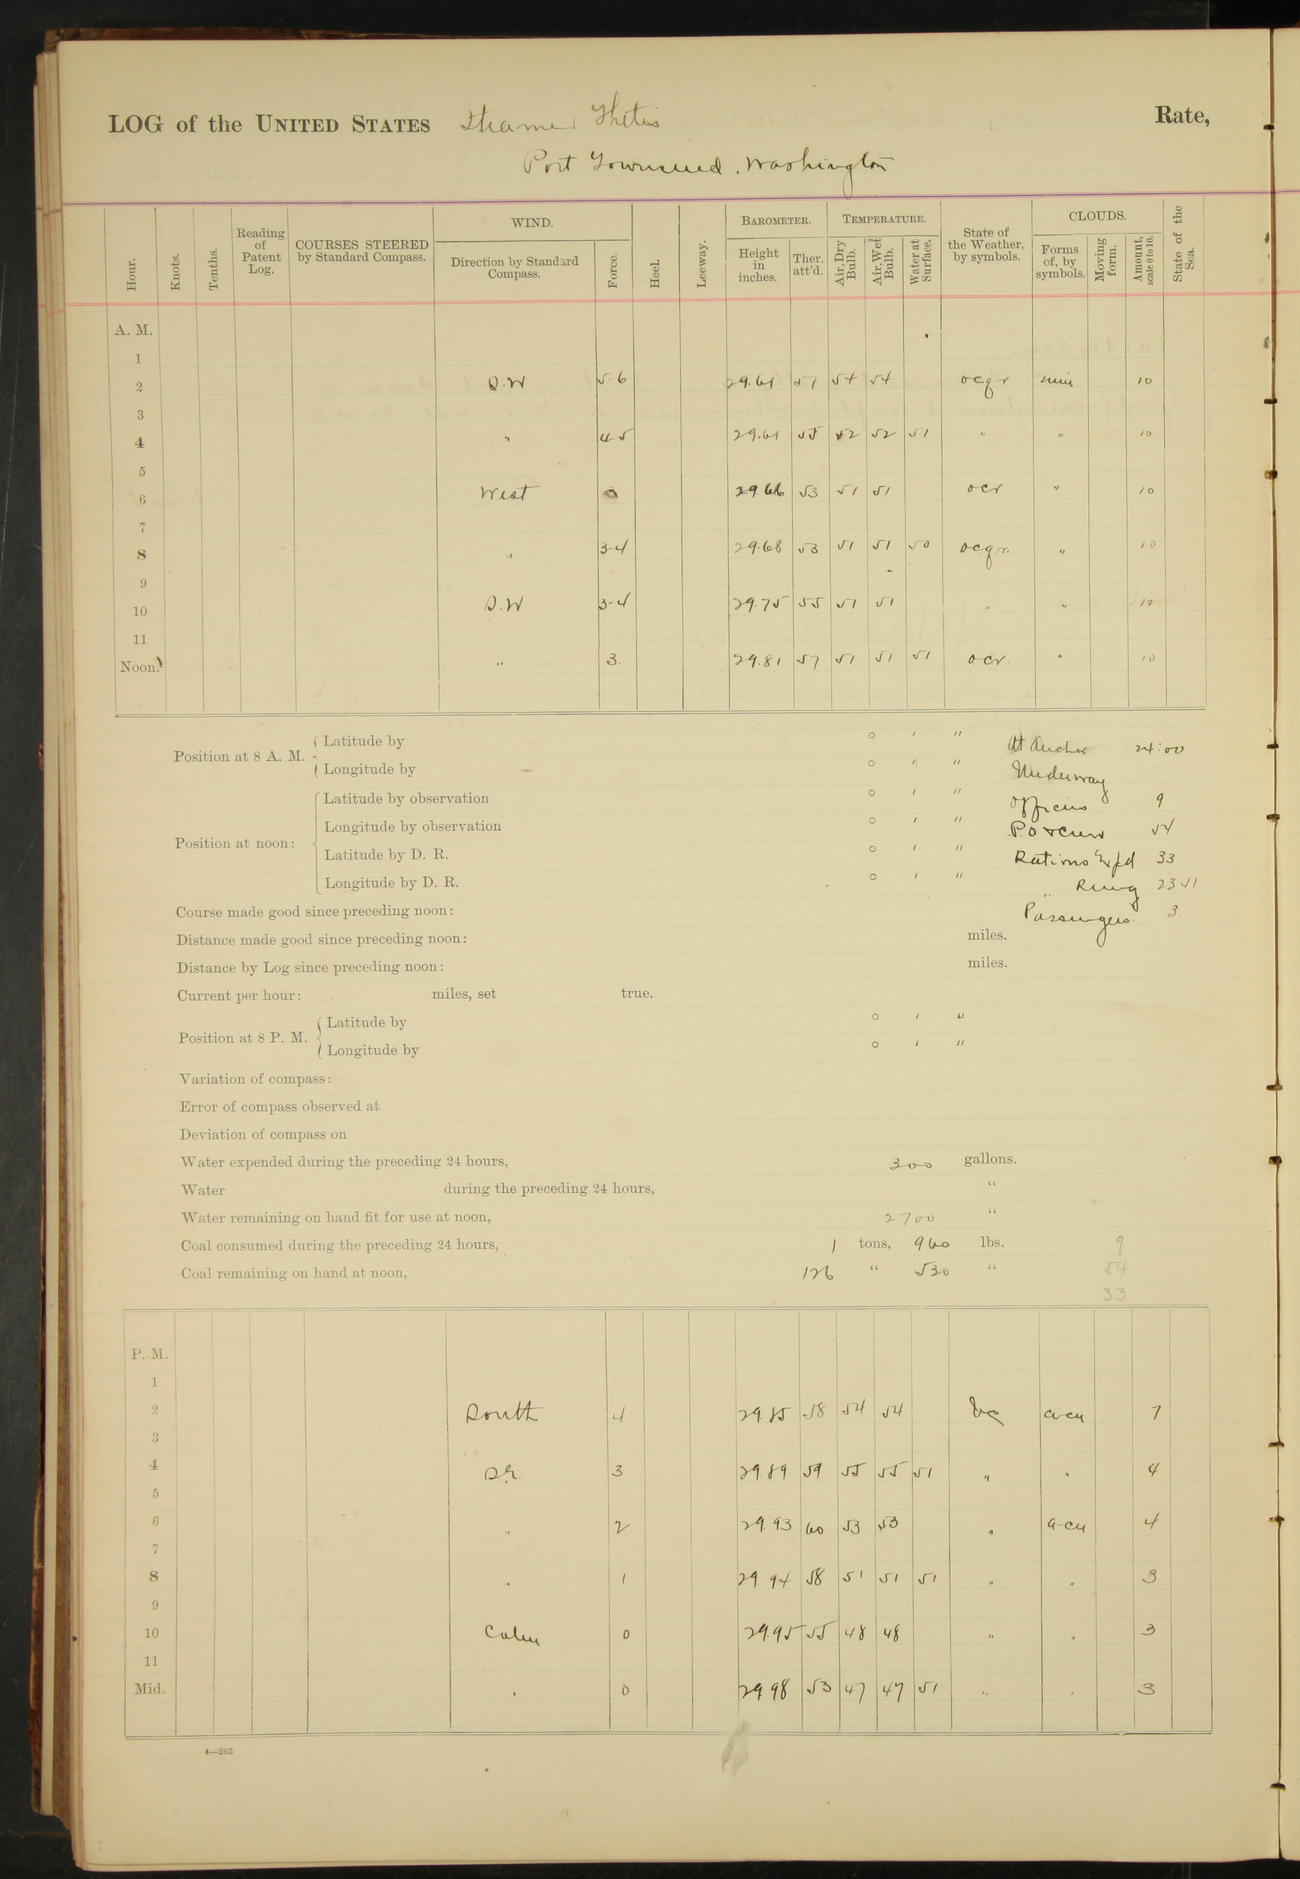 LOG of the UNITED STATES Steamer Thetis Rate,
Port Townsend, Washington
Hour. Knots. Tenths. Reading of Patent Log. COURSES STEERED by Standard Compass. WIND. Direction by Standard Compass. Force. Heel. Leeway. BAROMETER. Height in inches. Ther. att'd. TEMPERATURE. Air, Dry Bulb. Air, Wet Bulb. Water at Surface. State of the Weather, by symbols. CLOUDS. Forms of, by symbols. Moving form. Amount, scale 0 to 10. State of the Sea.
A. M.
1
2 S.W 5-6 29.61 57 54 54 ocqr nim 10
3
4 " 4-5 29.61 55 52 52 51 " " 10
5
6 West 29.66 53 51 51 ocr " 10
7
8 " 3-4 29.68 53 51 51 50 ocqr. " 10
9
10 S.W 3-4 29.75 55 51 51 " " 10
11
Noon. " 3. 29.81 57 51 51 51 ocr. " 10
Position at 8 A. M. Latitude by ° ′ ″ At Anchor 24:00
Longitude by ° ′ ″ Underway
Position at noon: Latitude by observation ° ′ ″ Officers 9
Longitude by observation ° ′ ″ P.O & Crew 54
Latitude by D. R. ° ′ ″ Rations Expd 33
Longitude by D. R. ° ′ ″ " Remg 2341
Course made good since preceding noon: Passengers. 3
Distance made good since preceding noon: miles.
Distance by Log since preceding noon: miles.
Current per hour: miles, set true.
Position at 8 P. M. Latitude by ° ′ ″
Longitude by ° ′ ″
Variation of compass:
Error of compass observed at
Deviation of compass on
Water expended during the preceding 24 hours, 300 gallons.
Water during the preceding 24 hours, "
Water remaining on hand fit for use at noon, 2700 "
Coal consumed during the preceding 24 hours, 1 tons, 960 lbs. 9
Coal remaining on hand at noon, 126 " 530 " 54
33
P. M.
1
2 South 4 29.85 58 54 54 bc ci-cu 7
3
4 3 29.89 59 55 55 51 " " 4
5
6 " 2 29.93 60 53 53 " a-cu 4
7
8 " 1 29.94 58 51 51 51 " " 3
9
10 Calm 0 29.95 55 48 48 " " 3
11
Mid. " 0 29.98 53 47 47 51 " " 3
4—265